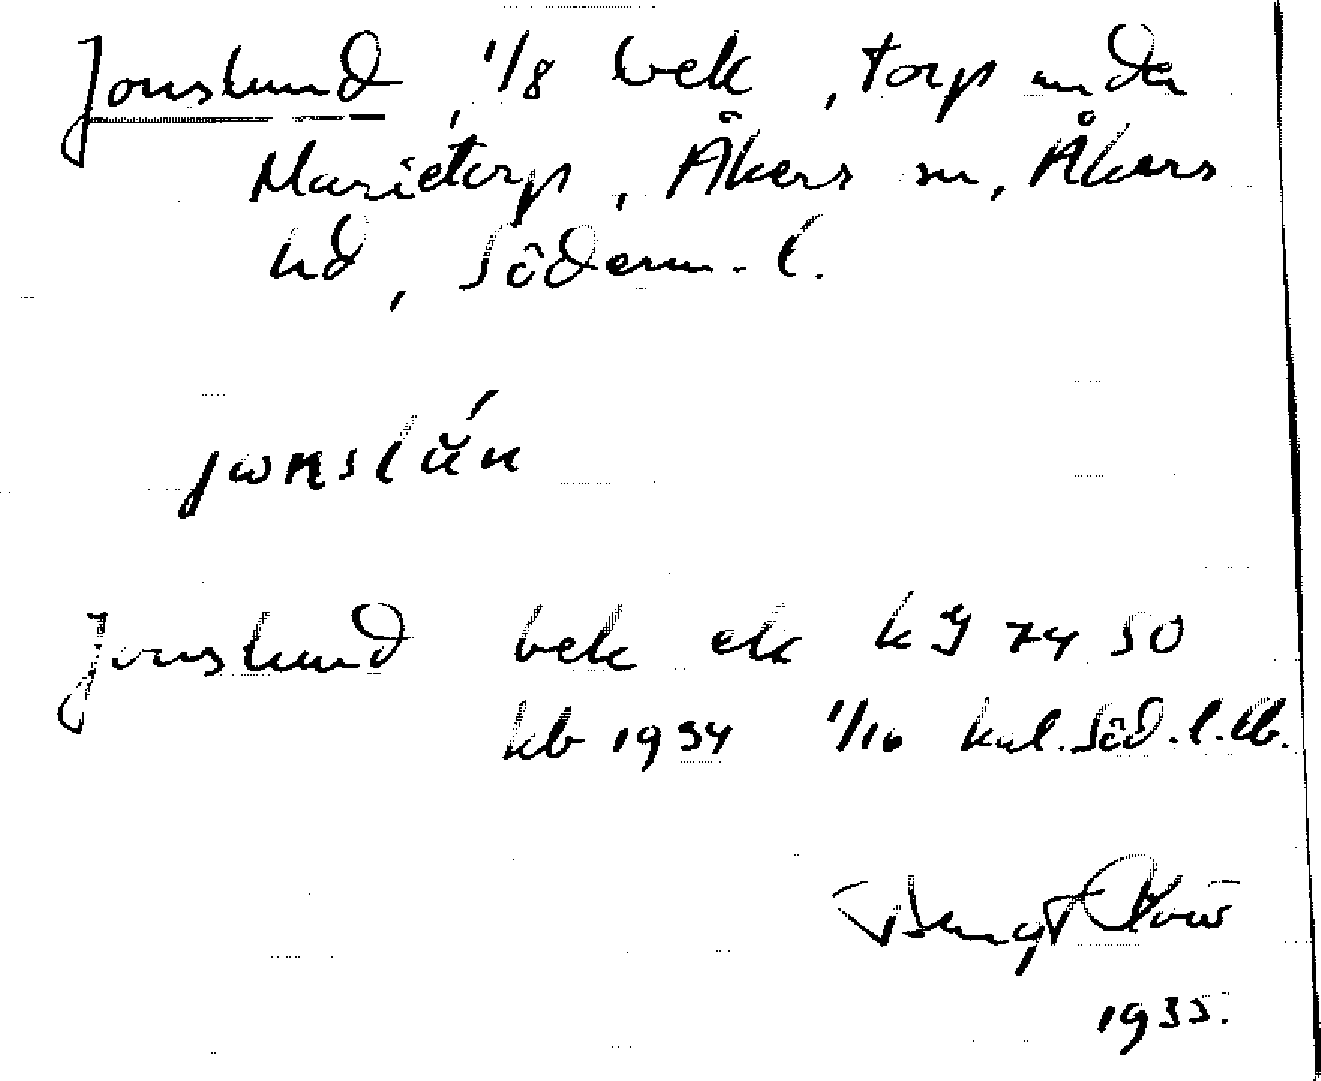 Jonslund, 1/8 bek, torp under
Marietorp, Åkers sn, Åkers
hd, Söderm. l.
Jonslund bek ek kJ 74 50
kb 1934 1/10 kul. Söd. l. lb.
Bengt
1935.